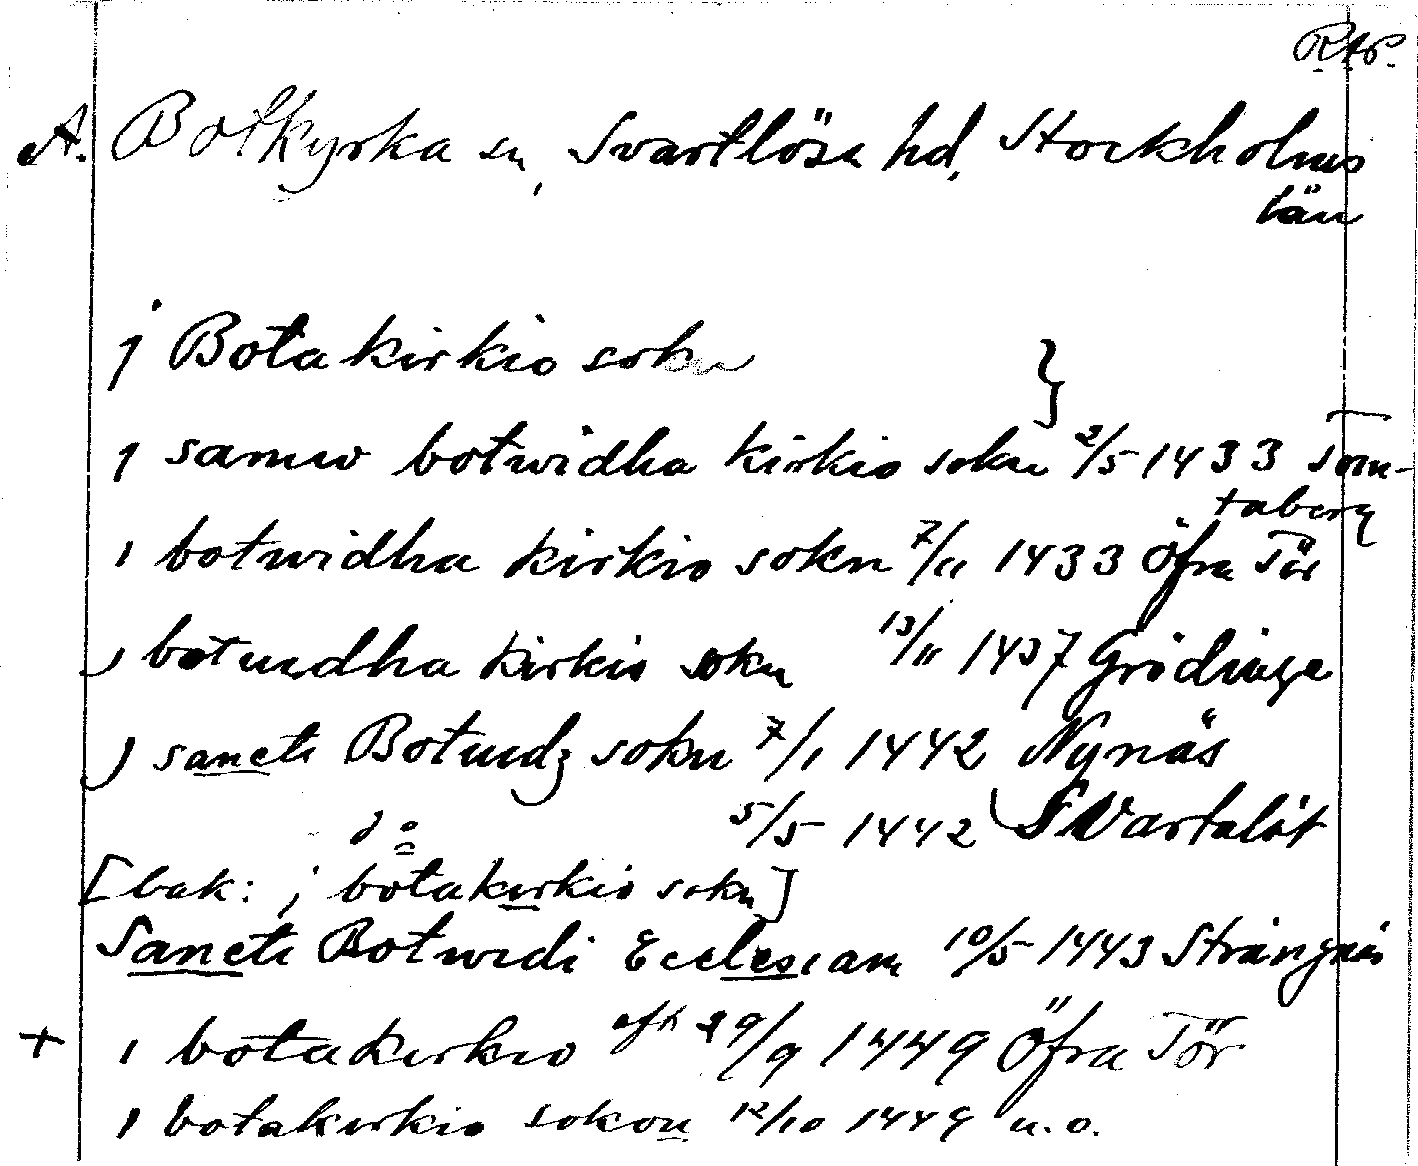 R.A.P.
A. Botkyrka sn, Svartlösa hd, Stockholms
län
j Botakirkio sokn }
j samw botwidha kirkio sokn 2/5 1433 Tom-
taberg
i botwidha kirkio sokn 7/11 1433 Öfra Tör
j botuidha kirkio sokn 13/11 1437 Grödinge
j sancti Botuidz sokn 7/1 1442 Nynäs
do 5/5 1442 Svartalöt
[bak: j botakirkio sokn]
Sancti Botwidi Ecclesiam 10/5 1443 Strängnäs
+ i botakirkio eft 29/9 1449 Öfra Tör
j botakirkio sokon 12/10 1449 u.o.